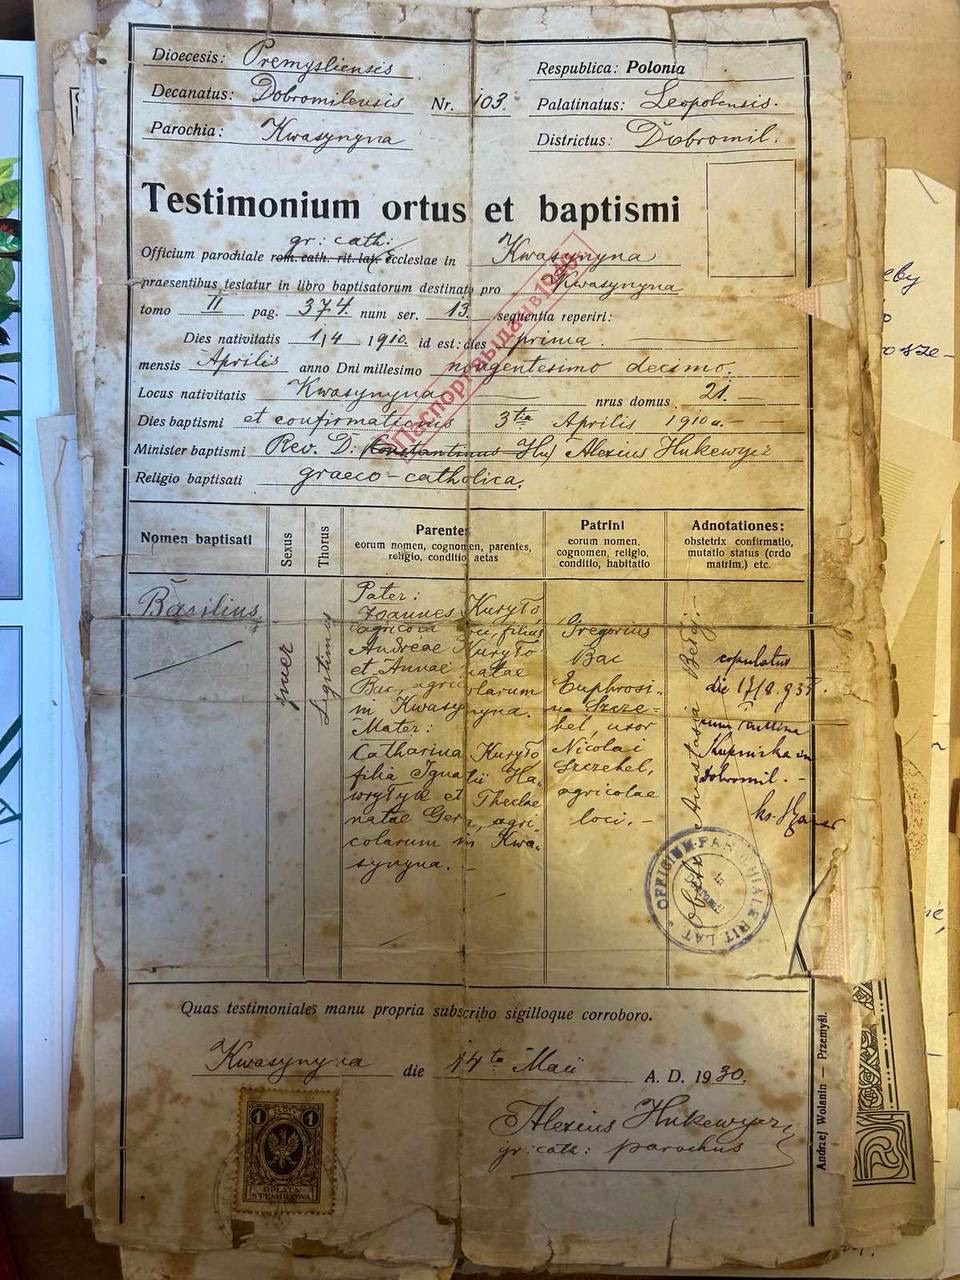 Dioecesis: Premysliensis
Respublica: Polonia
Decanatus: Dobromilensis Nr. 103.
Palatinatus: Leopolensis.
Parochia: Kwasynyna
Districtus: Dobromil.
Testimonium ortus et baptismi
gr: cath:
Officium parochiale rom. cath. rit. lat. ecclesiae in Kwasynyna
praesentibus testatur in libro baptisatorum destinato pro Kwasynyna
tomo II pag. 374. num ser. 13. sequentia reperiri:
Dies nativitatis 1/4 1910. id est: dies prima.
mensis Aprilis anno Dni millesimo nongentesimo decimo.
Locus nativitatis Kwasynyna nrus domus 21.
Dies baptismi et confirmationis 3tia Aprilis 1910 a.
Minister baptismi Rev. D. Constantinus Hu Alexius Hukewycz
Religio baptisati graeco-catholica.
Паспорт выдан в
Nomen baptisati
Sexus
Thorus
Parentes
eorum nomen, cognomen, parentes,
religio, conditio, aetas
Patrini
eorum nomen,
cognomen, religio,
conditio, habitatio
Adnotationes:
obstetrix confirmatio,
mutatio status (ordo
matrim.) etc.
Basilius
puer
Legitimus
Pater:
Joannes Kuryło
agricola filius
Andreae Kuryło
et Annae natae
Bac, agricolarum
in Kwasynyna.
Mater:
Catharina Kuryło
filia Ignatii Ha-
wryłyk et Theclae
natae Gera, agri-
colarum in Kwa-
synyna.
Gregorius
Bac
Euphrosi-
na Szcze-
hel, uxor
Nicolai
Szczehel,
agricolae
loci.
Obstetr. Anastasia
copulatus
die 17/8. 935.
cum
in
Dobromil.
OFFICIUM PAROCHIALE RIT LAT
Quas testimoniales manu propria subscribo sigilloque corroboro.
Kwasynyna die 14ta Maii A. D. 1930.
Alexius Hukewycz
gr: cath: parochus
1 ZŁOTY 1
OPŁATA
STEMPLOWA
Andrzej Wolanin — Przemyśl.